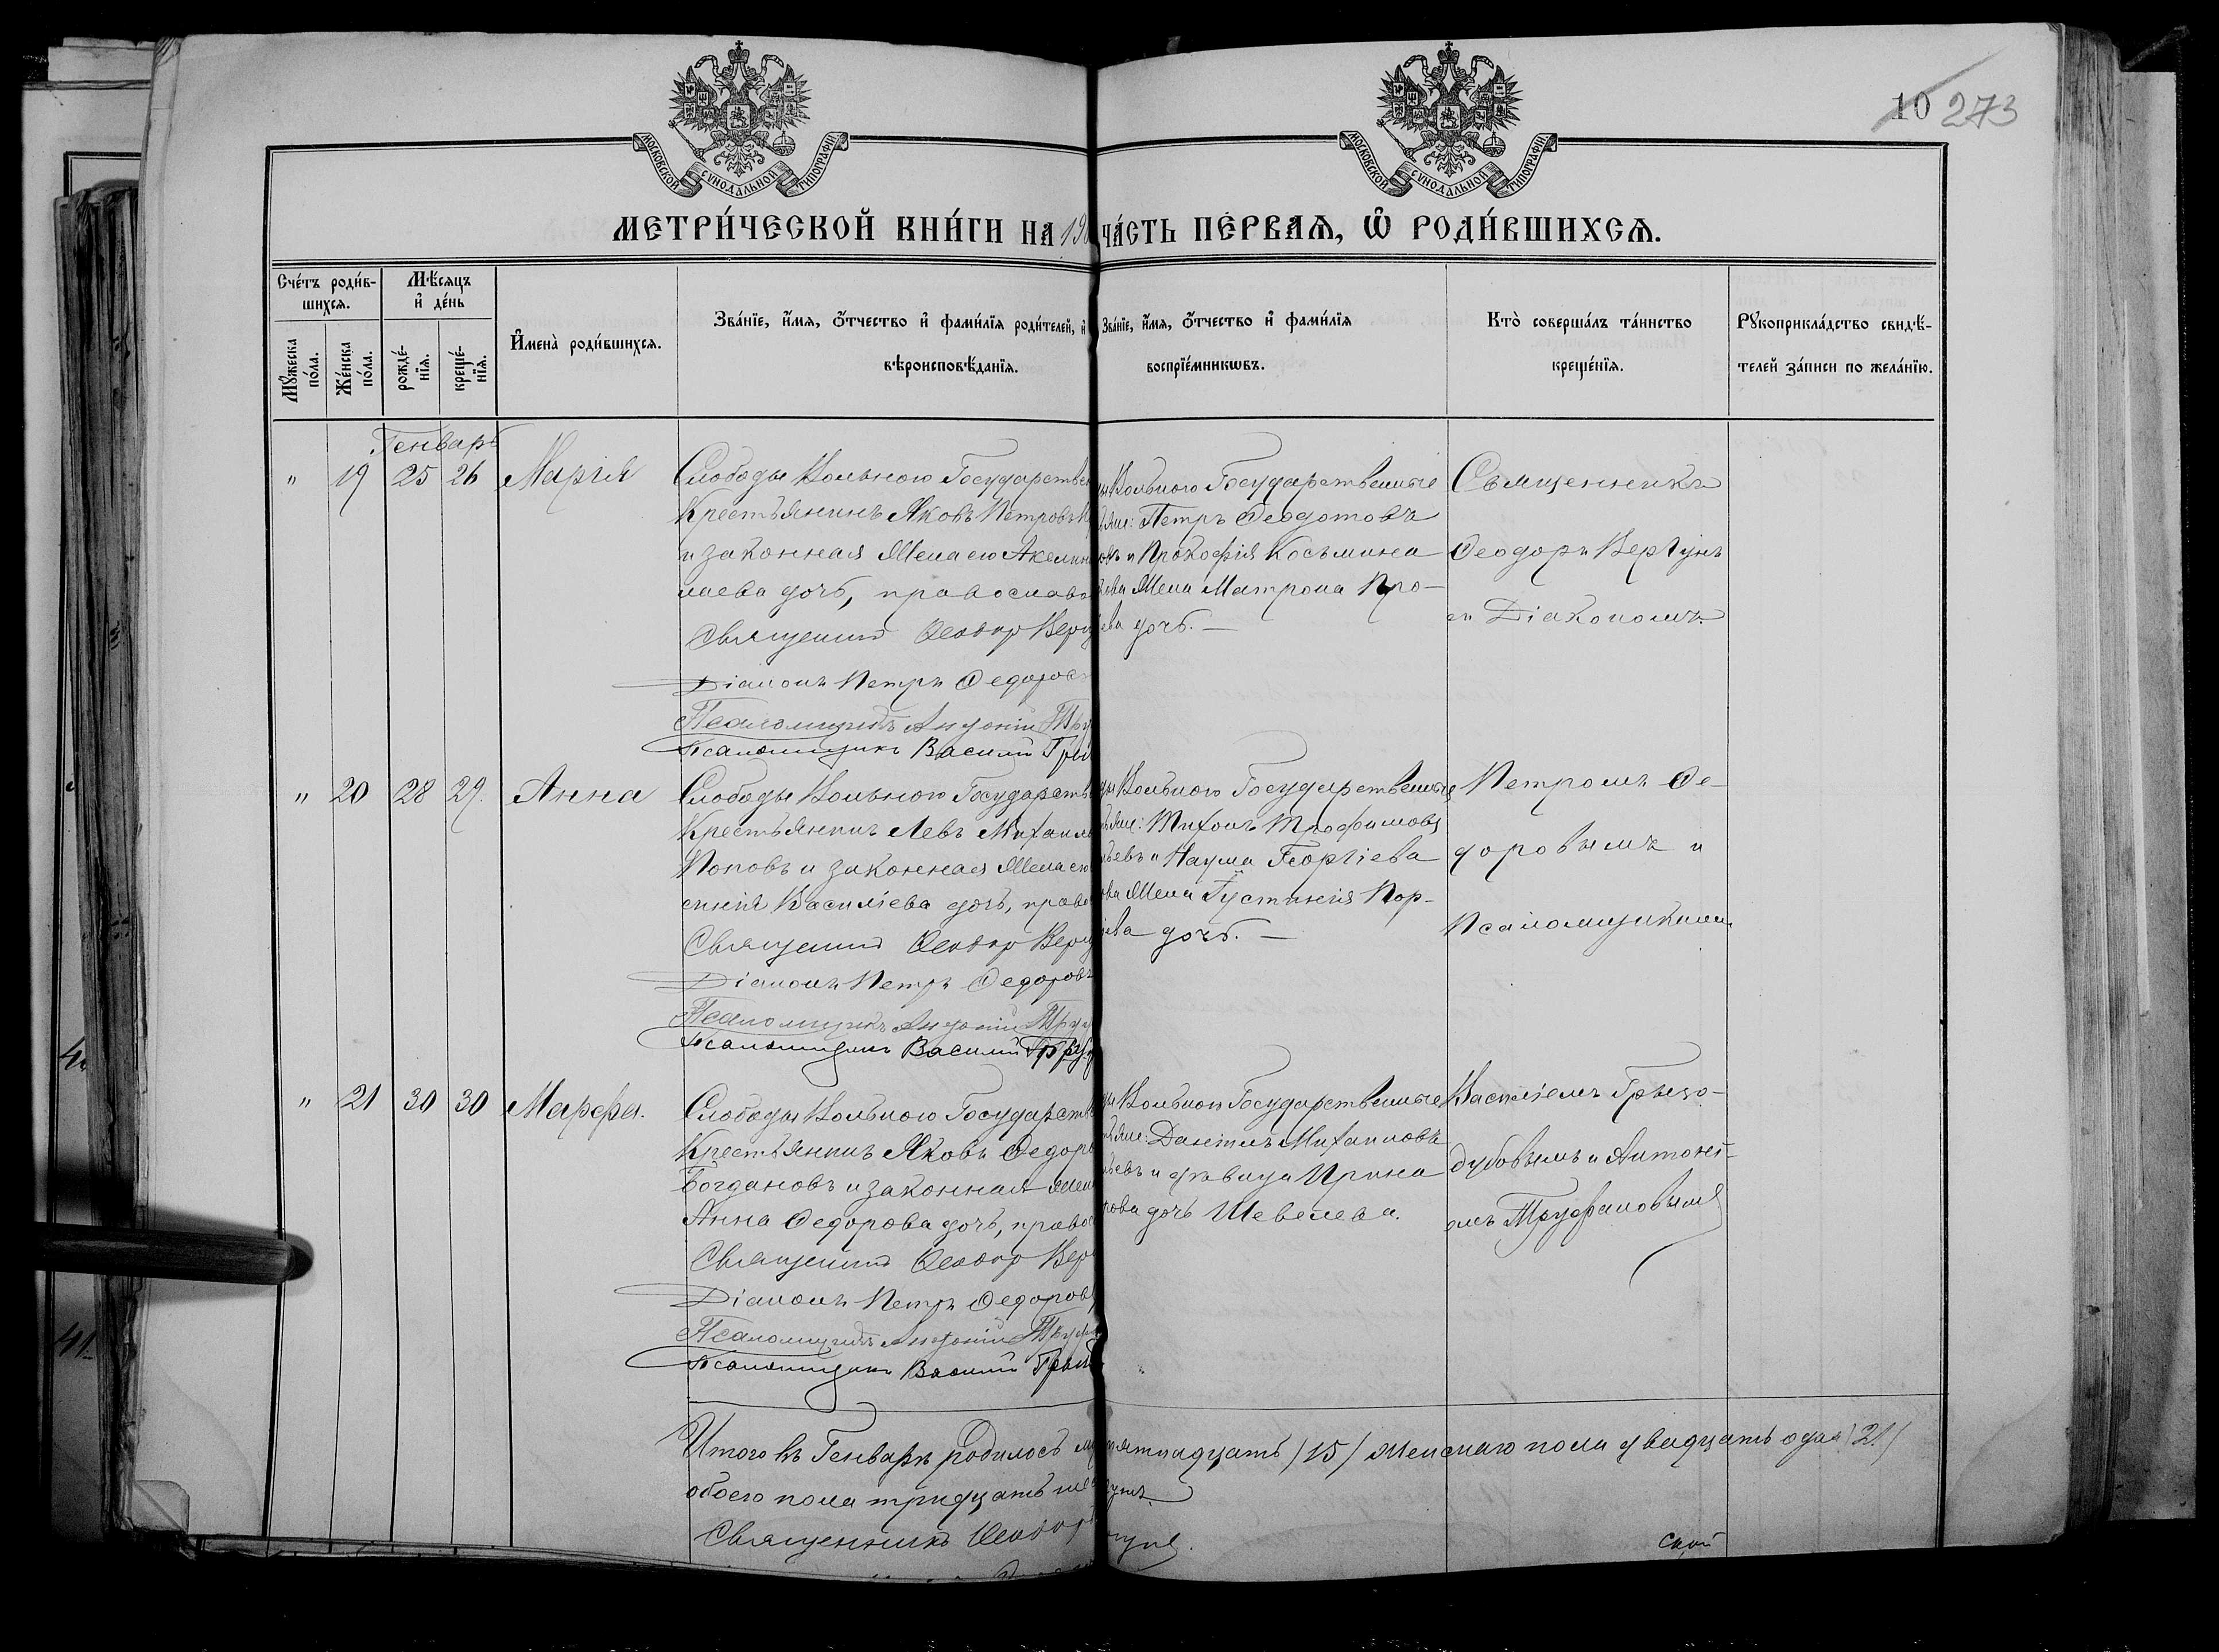 МОСКОВСКОЙ СУНОДАЛЬНОЙ ТИПОГРАФІИ
МОСКОВСКОЙ СУНОДАЛЬНОЙ ТИПОГРАФІИ
10 273
МЕТРИ́ЧЕСКОЙ КНИ́ГИ НА 19
ЧА́СТЬ ПЕ́РВАЯ, Ѽ РОДИ́ВШИХСЯ.
Сче́тъ роди́в-
шихся.
Мꙋ́жеска по́ла.
Же́нска по́ла.
Мѣ́сяцъ
и҆ де́нь
рожде́-
нїя.
креще́-
нїя.
И҆мена̀ роди́вшихся.
Зва́нїе, и҆́мя, ѻ҆́тчество и҆ фами́лїя роди́телей, и҆
вѣроисповѣ́данїя.
Зва́нїе, и҆́мя, ѻ҆́тчество и҆ фами́лїя
воспрїе́мникѡвъ.
Кто̀ соверша́лъ та́инство
креще́нїя.
Рꙋкоприкла́дство свидѣ́-
телей за́писи по жела́нїю.
Генварь
" 19 25 26 Марія
Слободы Вольною Государствен
Крестьянинъ Яковъ Петровъ
и законная Жена ею Акелин
лаева дочь, православ
Священник Ѳеодор Верг
Діаконъ Петръ Ѳедоров
Псаломщикъ Антоній Тру
Псаломщикъ Василій Гры
Вольного Государственные
Петръ Ѳеодотовъ
и Прокофія Косьмина
Жена Матрона Про-
ева дочь. —
Священникъ
Ѳеодоръ Вергунъ
съ Діакономъ
" 20 28 29. Анна
Слободы Вольною Государств
Крестьянинъ Левъ Михаил
Поповъ и законная Жена ею
Василіева дочь, право
Священник Ѳеодор Верг
Діаконъ Петръ Ѳедоровъ
Псаломщикъ Антоній Тру
Псаломщикъ Василій Гры
Вольною Государственные
Тихонъ Трофимовъ
и Наума Георгіева
Жена Густинія Пор-
дочь. —
Петромъ Ѳе-
доровымъ и
Псаломщиками
" 21 30 30 Марфа.
Слободы Вольною Государств
Крестьянинъ Яковъ Ѳедоро
Богдановъ и законная Жен
Анна Ѳедорова дочь, право
Священник Ѳеодор Вер
Діаконъ Петръ Ѳедоров
Псаломщикъ Антоній Труф
Псаломщикъ Василій Грызо
Вольною Государственные
Даніилъ Михаиловъ
и дѣвица Ирина
дочь Шевелева.
Василіемъ Грызо-
дубовымъ и Антоні-
емъ Труфановымъ
Итого въ Генварѣ родилось му пятнадцать /15/ Женскаго пола двадцать одна /21/
обоего пола тридцать ше
Священникъ Ѳеодор гунъ.